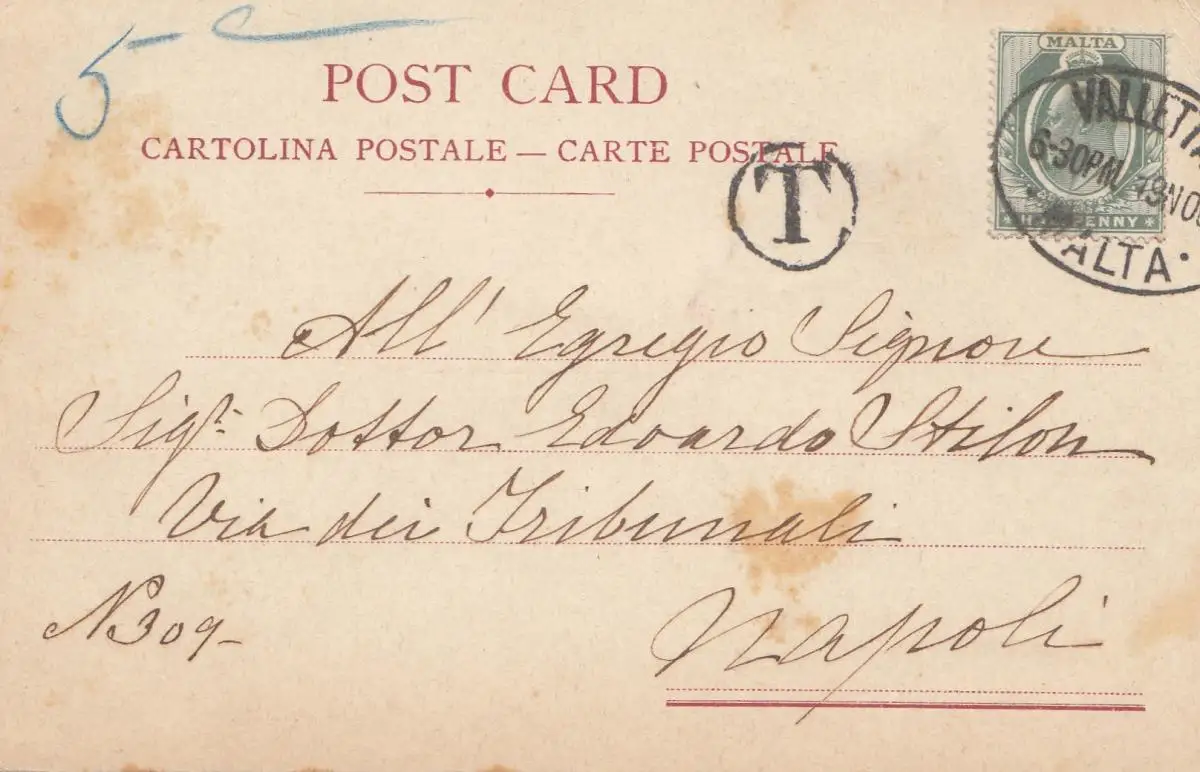 5-
POST CARD
CARTOLINA POSTALE — CARTE POSTALE
T
MALTA
HALFPENNY
VALLETTA
6-30PM 19 NO
MALTA
All' Egregio Signore
Sigr. Dottor Edoardo Stilon
Via dei Tribunali
N 309-
Napoli